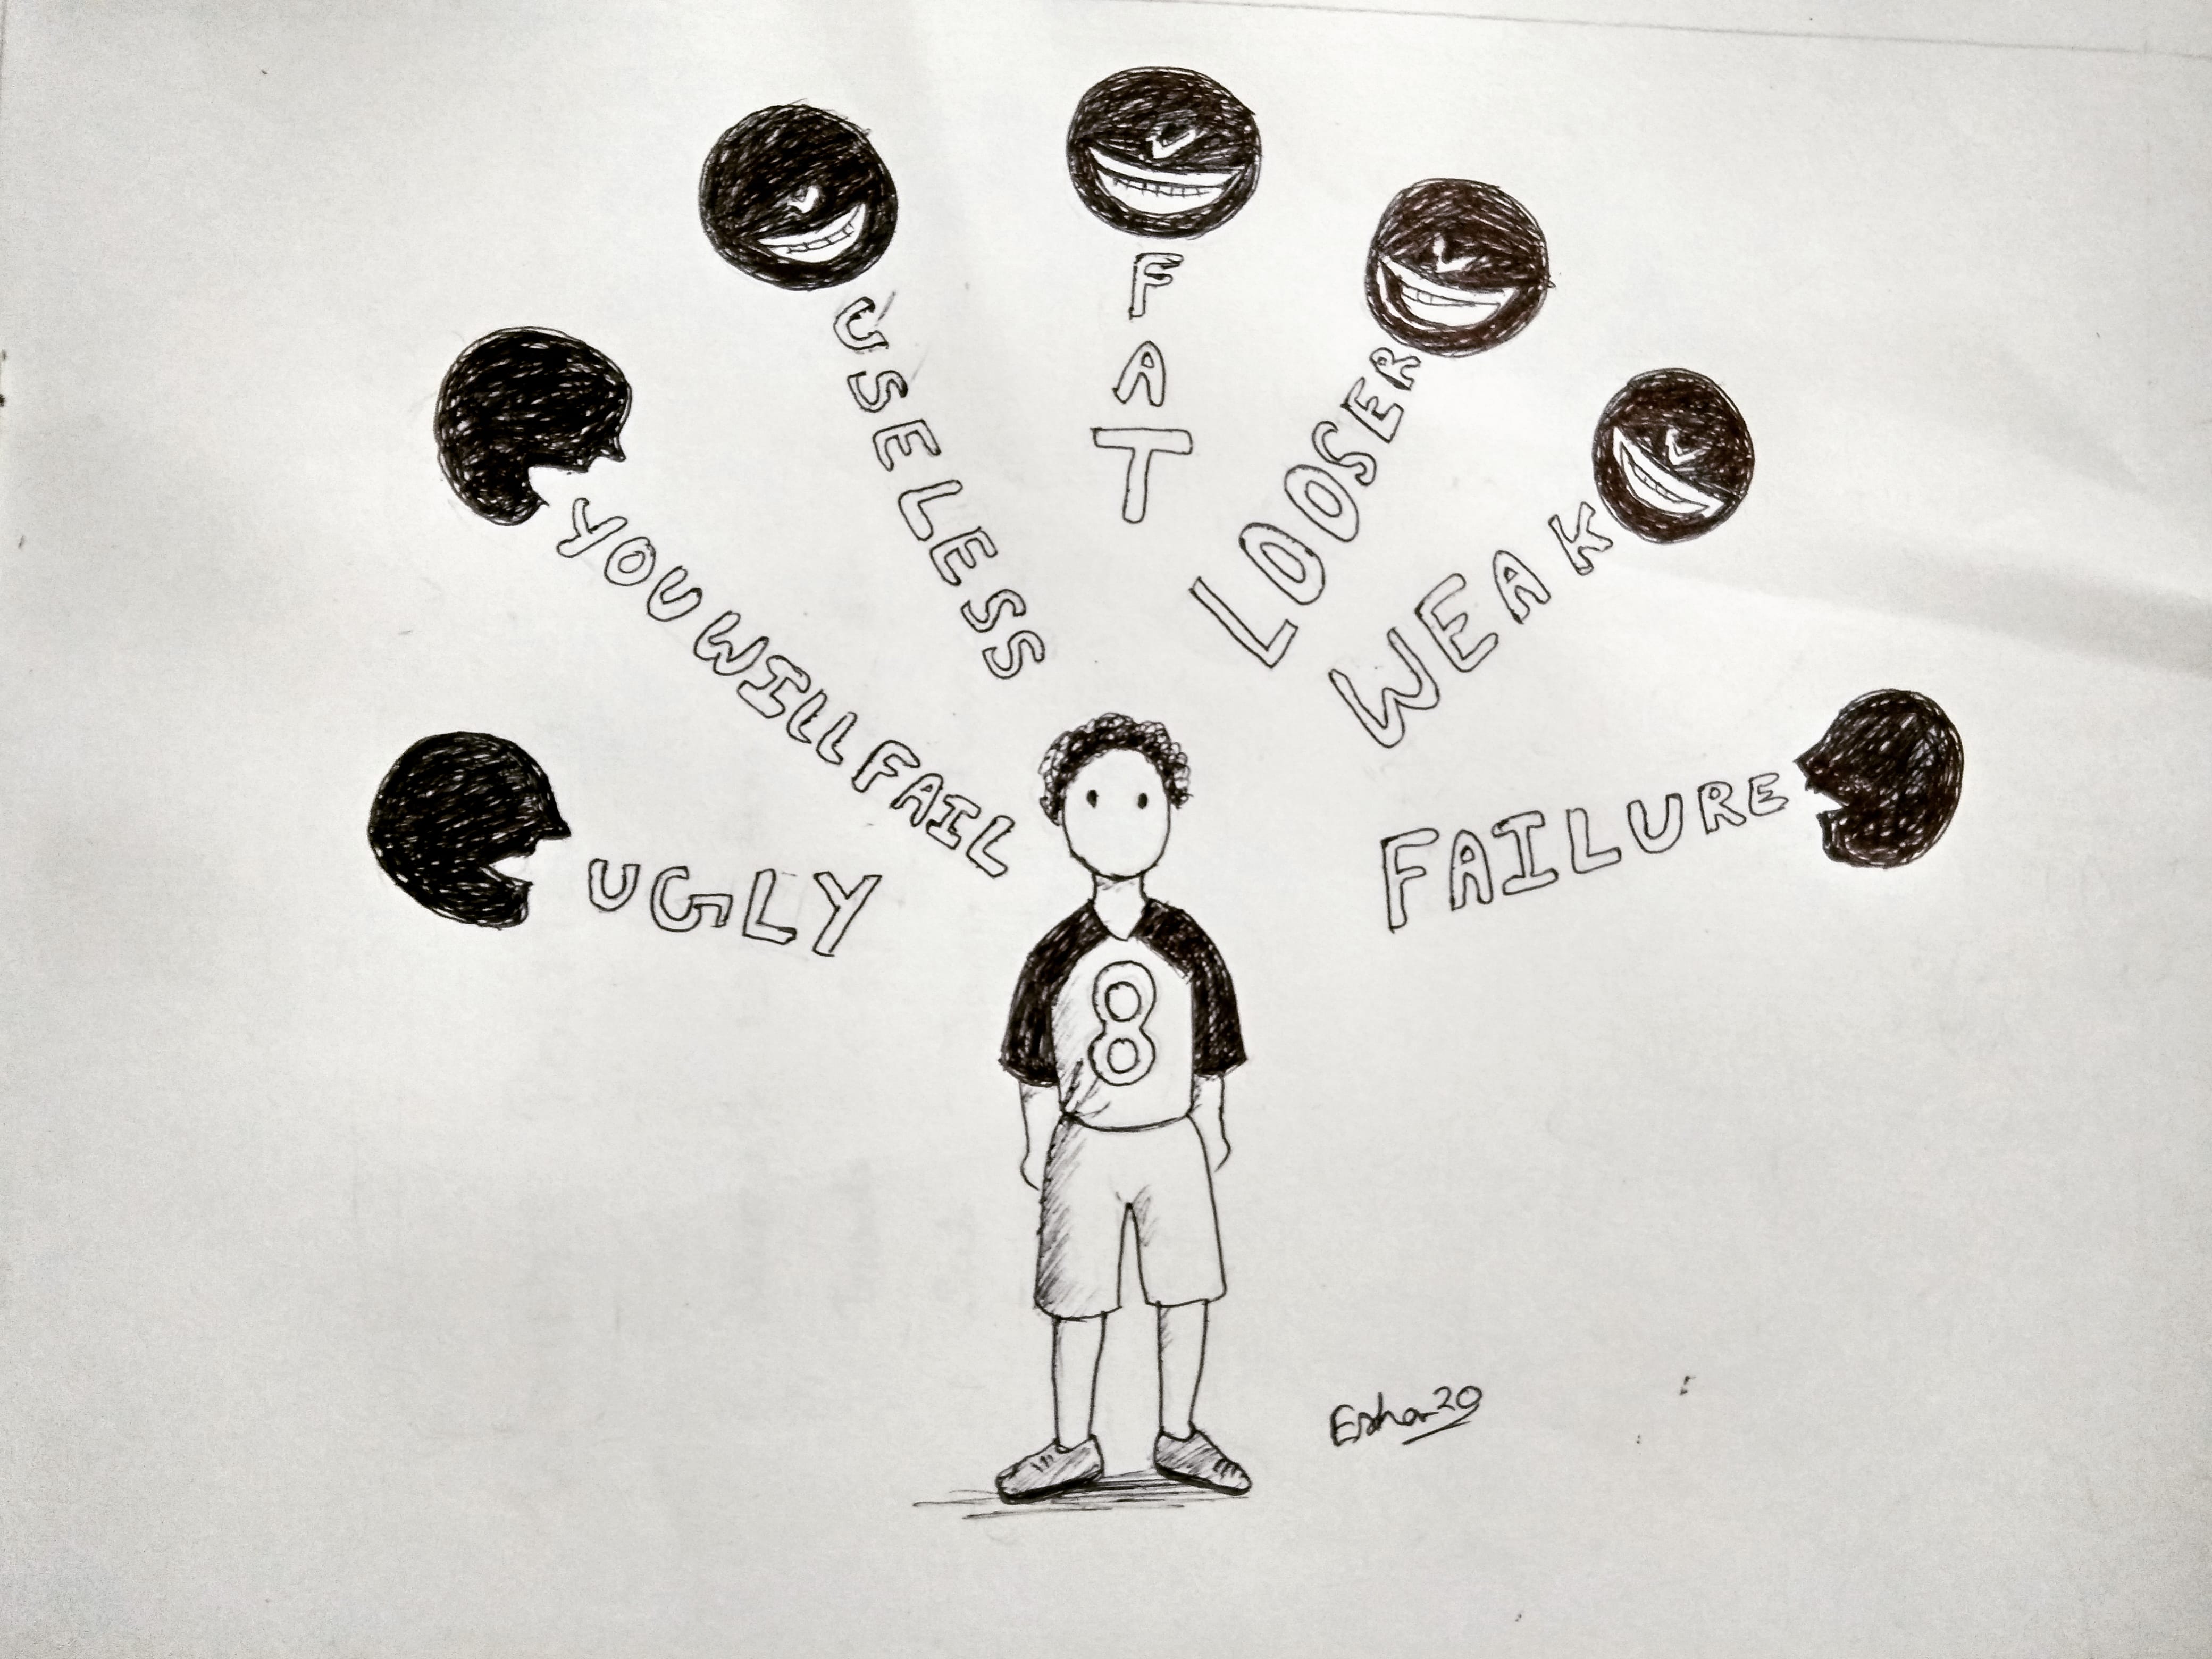 UGLY
YOU WILL FAIL
USELESS
FAT
LOOSER
WEAK
FAILURE
8
Esha 20